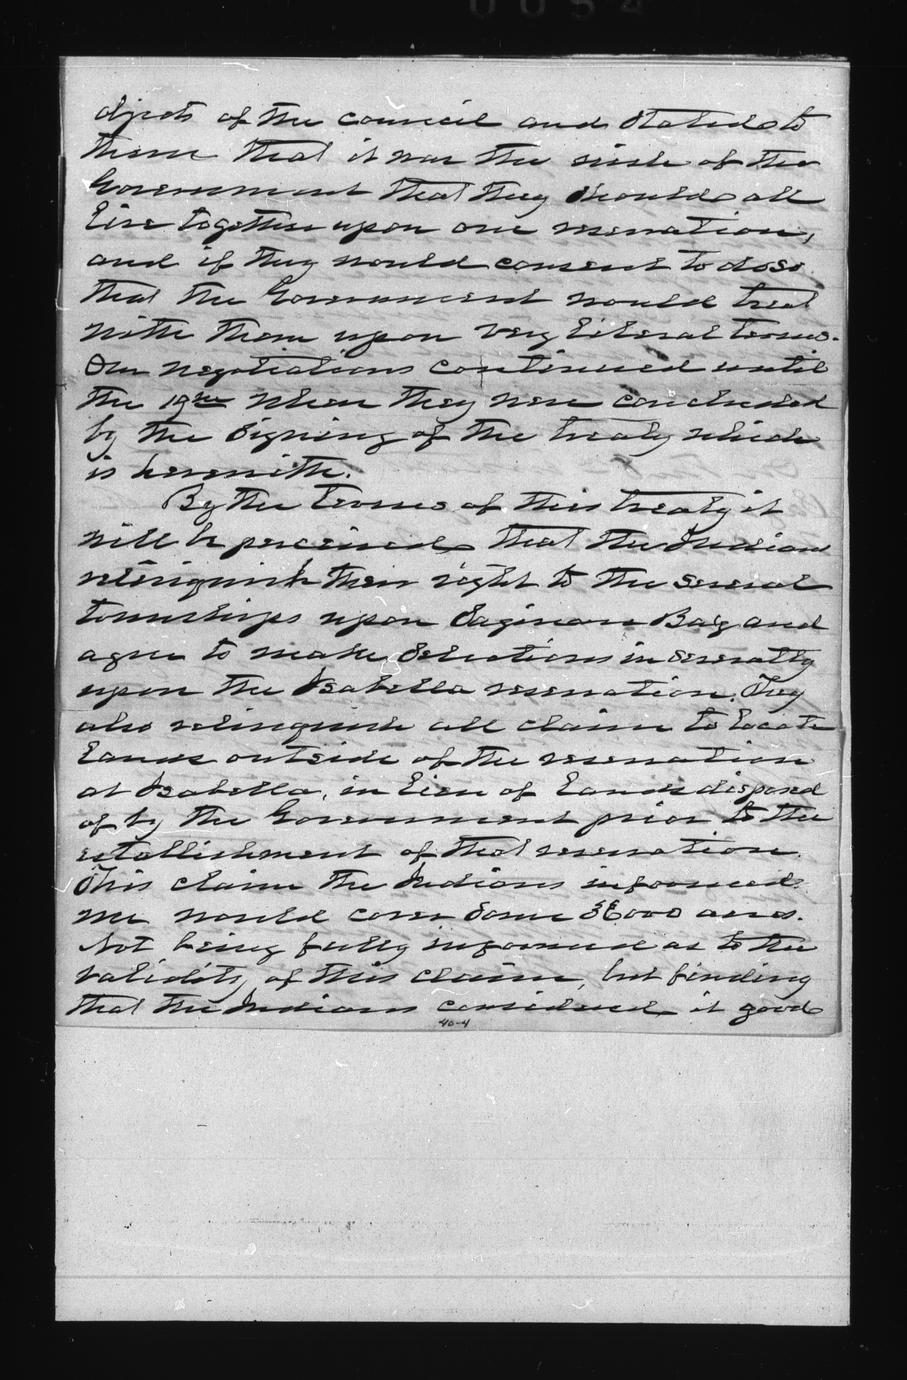 0054
objects of the council and stated to
them that it was the wish of the
Government that they should all
live together upon one reservation,
and if they would consent to do so
that the Government would treat
with them upon very liberal terms.
Our negotiations continued until
the 19th when they were concluded
by the signing of the treaty which
is herewith.
By the terms of this treaty it
will be perceived that the Indians
relinquish their right to the several
townships upon Saginaw Bay and
agree to make selections in severalty
upon the Isabella reservation. They
also relinquish all claim to locate
lands outside of the reservation
at Isabella, in lieu of lands disposed
of by the Government prior to the
establishment of that reservation.
This claim the Indians informed
me would cover some acres.
Not being fully informed as to the
validity of this claim, but finding
that the Indians considered it good
40-4